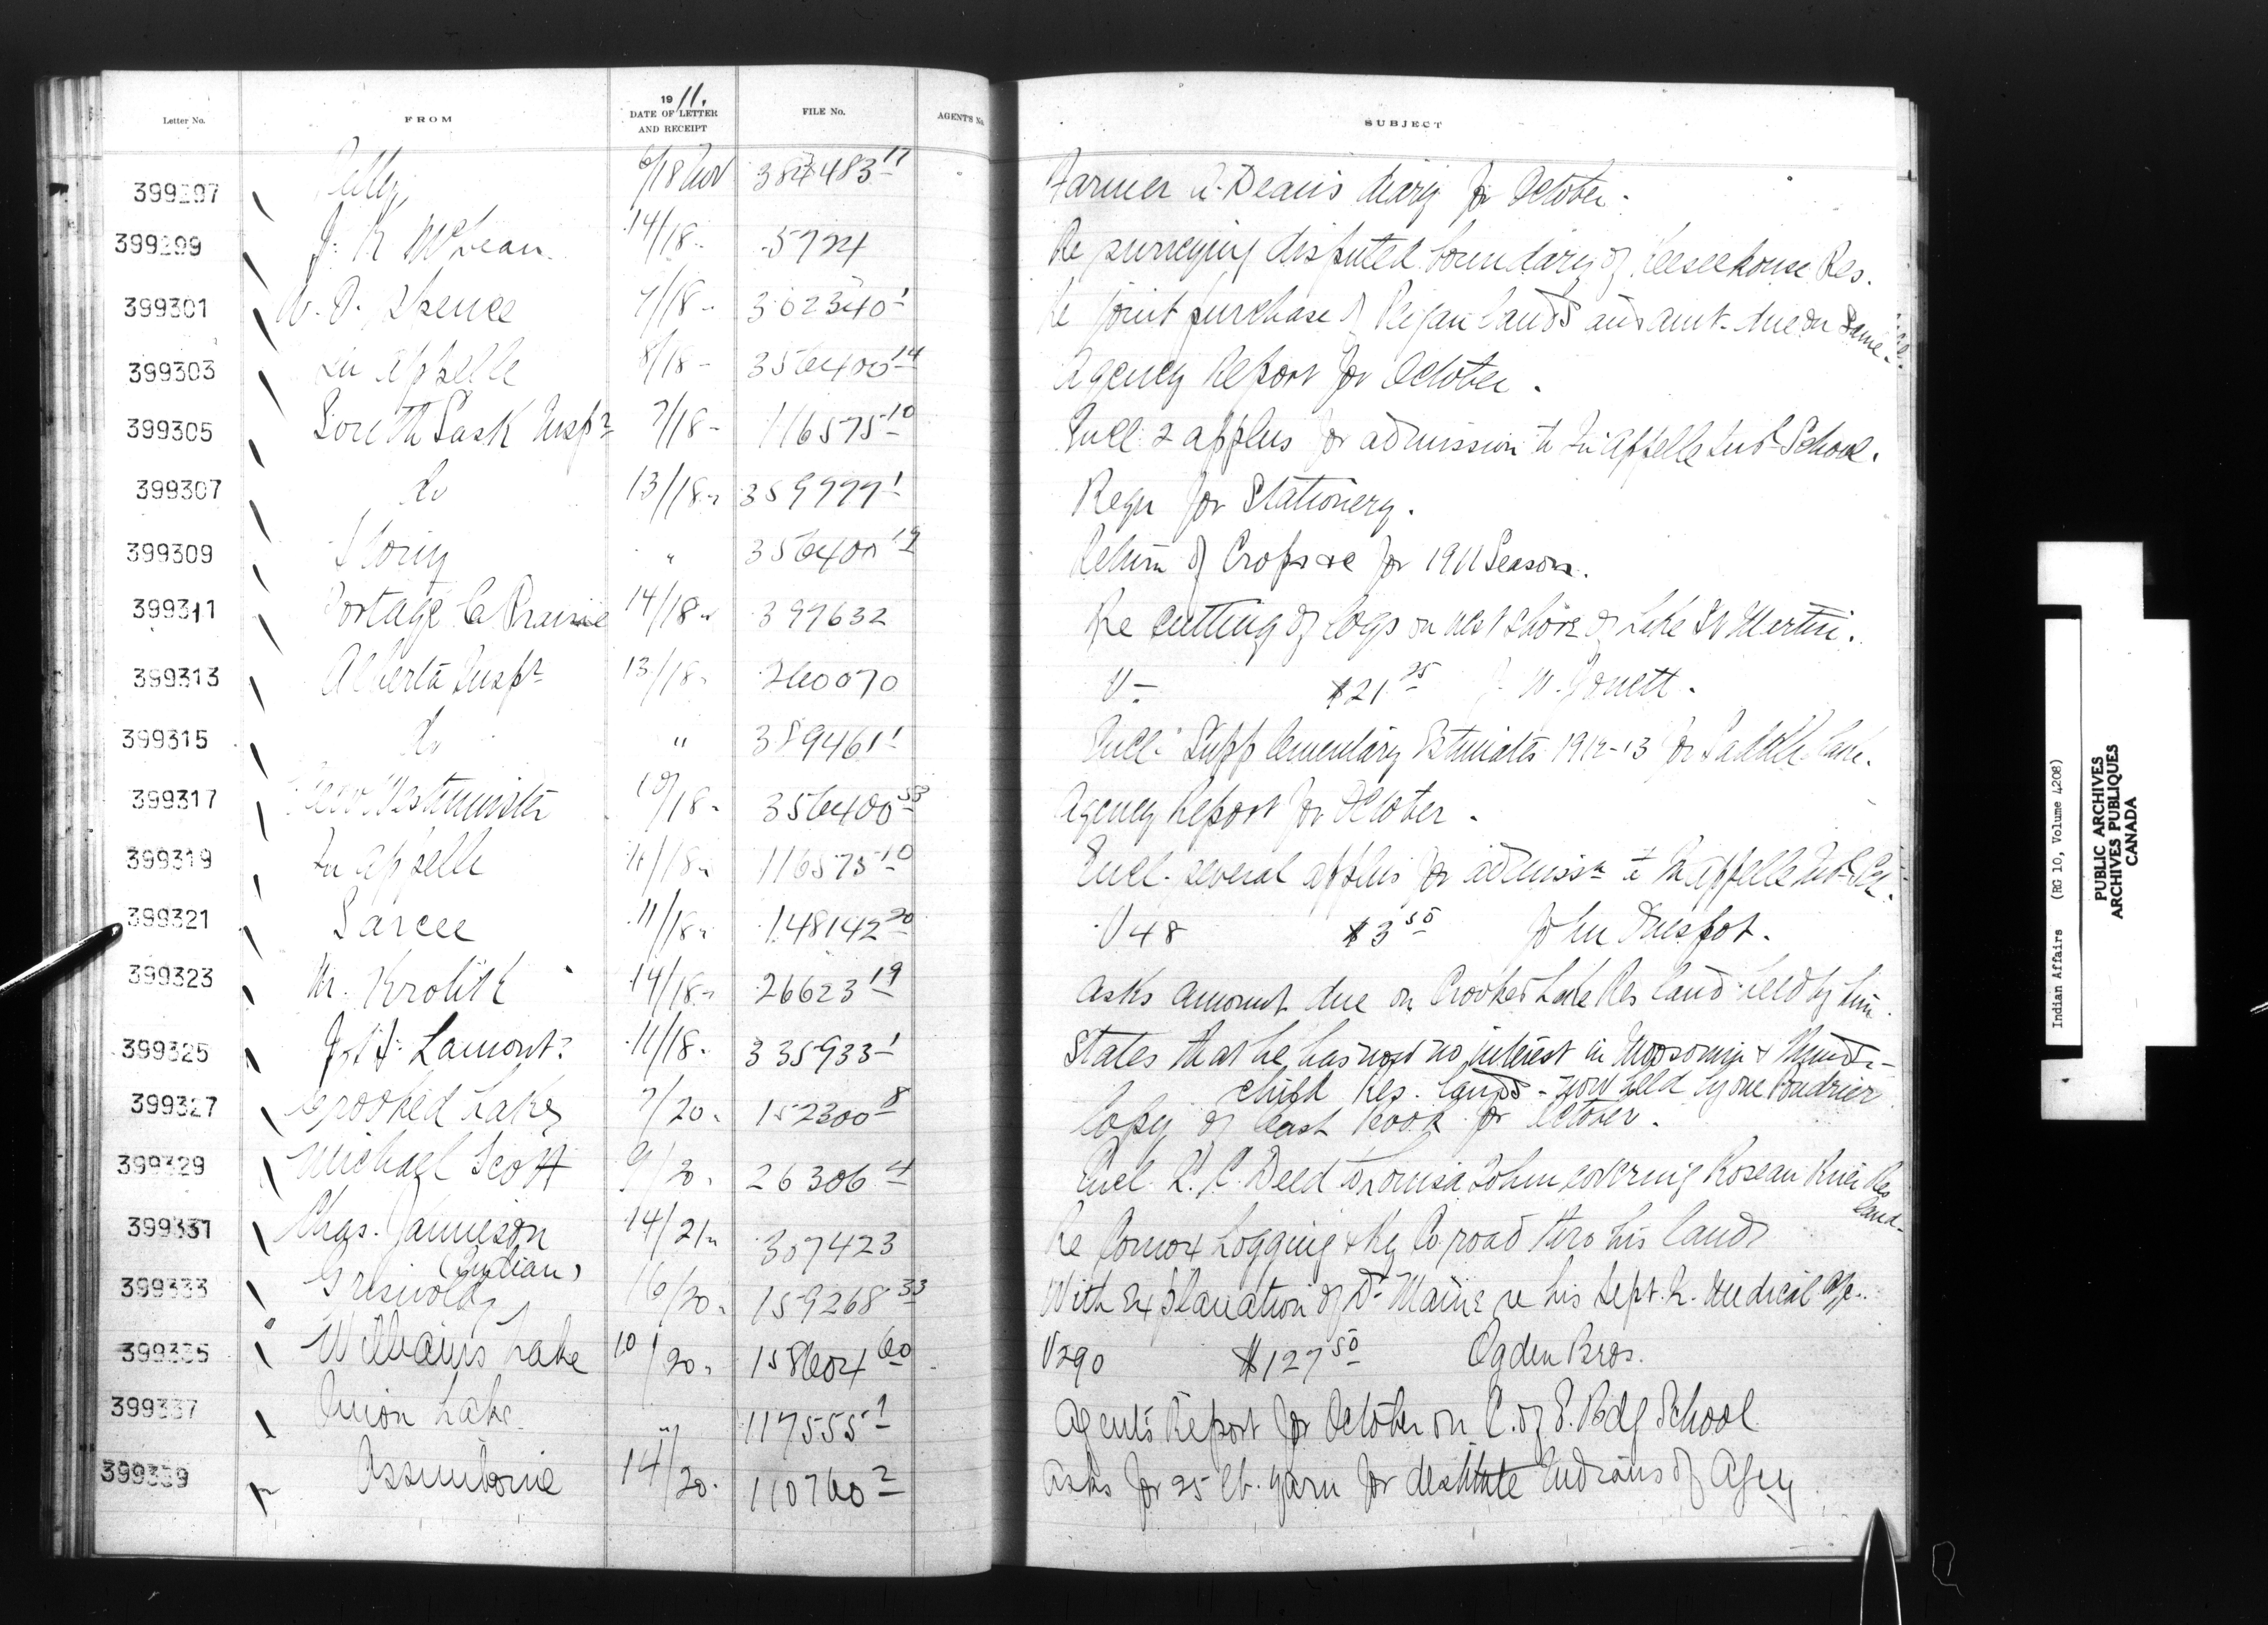 Letter No. FROM 1911. DATE OF LETTER AND RECEIPT FILE No. AGENT'S No. SUBJECT
399297 Pelly 6/18 Nov 17 Farmer Dean's diary for October.
399299 J. K. McLean 14/18 5724 Re surveying disputed boundary of Res.
399301 Spence 7/18 302340 1 Re joint purchase of Peigan lands and amt. due on same.
399303 Qu'Appelle 8/18 356400 14 Agency Report for October.
399305 South Sask Inspr 7/18 116575 10 Encl. 2 applns for admission to Qu'Appelle Ind. School.
399307 do 13/18 359999 1 Reqn for Stationery.
399309 Stony " 356400 19 Return of Crops &c for 1911 Season.
399311 Portage la Prairie 14/18 397632 Re cutting of logs on west shore of Lake St Martin.
399313 Alberta Inspr 13/18 260070 V- $21 25 J. W.
399315 do " 389461 1 Encl. Supplementary Estimates 1912-13 for Saddle Lake.
399317 New Westminster 10/18 356400 53 Agency Report for October.
399319 Qu'Appelle 11/18 116575 10 Encl. several applns for admissn to Qu'Appelle Ind. Sch.
399321 Sarcee 11/18 148142 20 V 48 $3 50 John
399323 M. Krolik 14/18 26623 19 Asks amount due on Crooked Lake Res land held by him.
399325 Lamont 11/18 335933 1 States that he has now no interest in Moosomin & Thunder-
child Res. lands - now held by one Poudrier.
399327 Crooked Lakes 7/20 152300 8 Copy of Cash Book for October.
399329 Michael Scott 9/20 26306 4 Encl. Q. C. Deed to Louisa covering Roseau River Res
land.
399331 Chas. Jamieson 14/21 307423 Re Comox Logging & Ry Co. road thro his land
(Indian)
399333 Griswold 16/20 159268 33 With explanation of Dr. re his Sept. Qr. Medical a/c.
399335 Williams Lake 10/20 158604 60 V290 $127 50 Ogden Bros.
399337 Onion Lake " 117555 1 Agent's Report for October on C. of E. Bdg School
399339 Assiniboine 14/20 110760 2 Asks for 25 lb. yarn for destitute Indians of Agcy
Indian Affairs (RG 10, Volume 4208)
PUBLIC ARCHIVES
ARCHIVES PUBLIQUES
CANADA